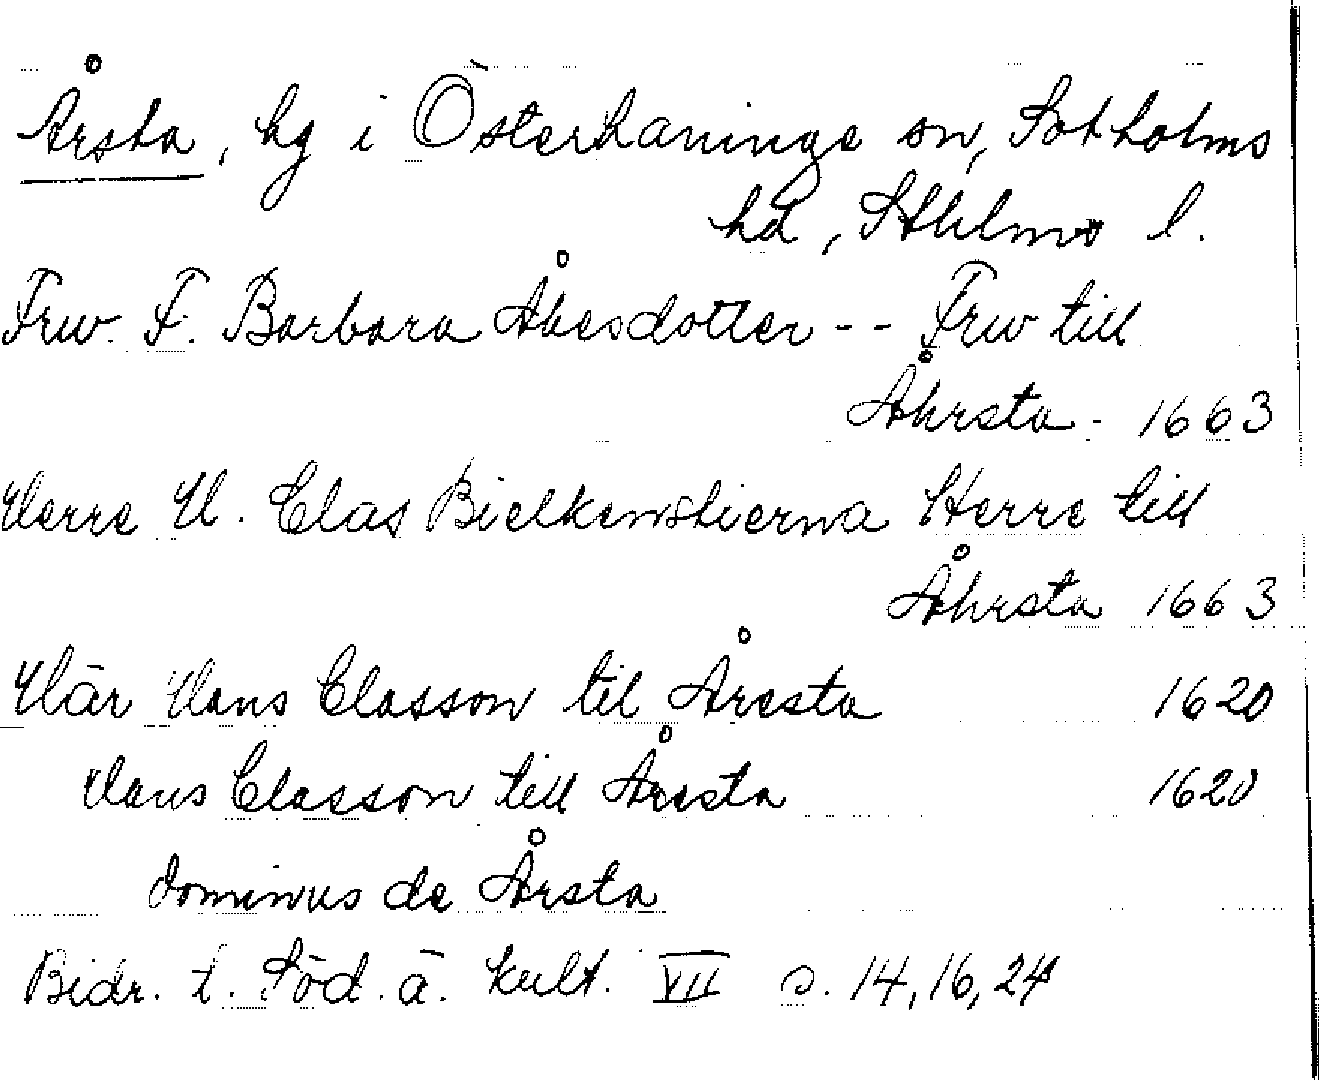 Årsta, hg i Österhaninge sn, Sotholms
hd, Sthlms l.
Frw. F. Barbara Åkesdotter -- Frw till
Åhrsta - 1663
Herre H. Clas Bielkenstierna Herre till
Åhrsta 1663
Här Hans Classon til Åresta 1620
Hans Classon till Åresta 1620
dominus de Årsta
Bidr. t. Söd. ä. kult. VII s. 14, 16, 24